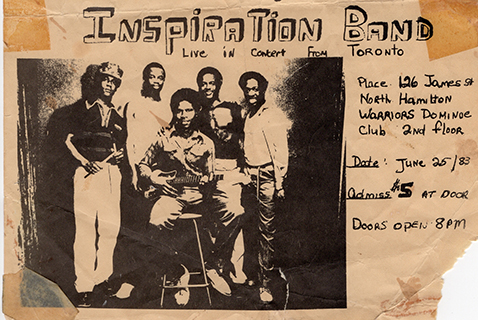 INSPIRATION BAND
Live in Concert From TORONTO
Place 126 James St
North Hamilton
WARRIORS DOMINOE
Club 2nd floor
Date: June 25/83
Admiss $5 AT DOOR
DOORS OPEN 8PM